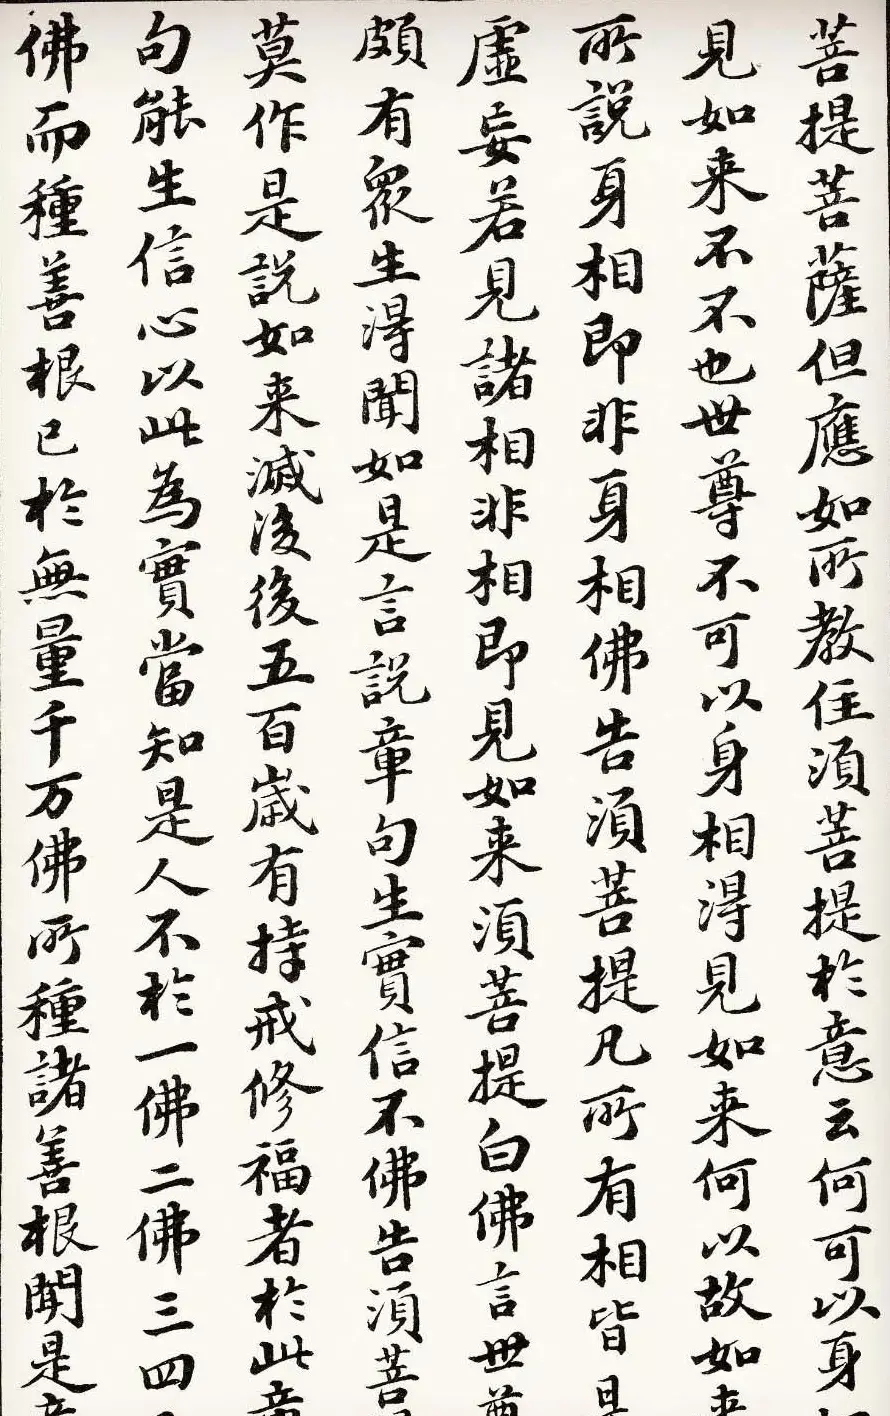 菩提菩薩但應如所教住須菩提於意云何可以身
見如来不不也世尊不可以身相得見如来何以故如来
所説身相即非身相佛告須菩提凡所有相皆是
虛妄若見諸相非相即見如来須菩提白佛言世尊
頗有眾生得聞如是言説章句生實信不佛告須菩
莫作是説如来滅後後五百歲有持戒修福者於此章
句能生信心以此為實當知是人不於一佛二佛三四
佛而種善根已於無量千万佛所種諸善根聞是章